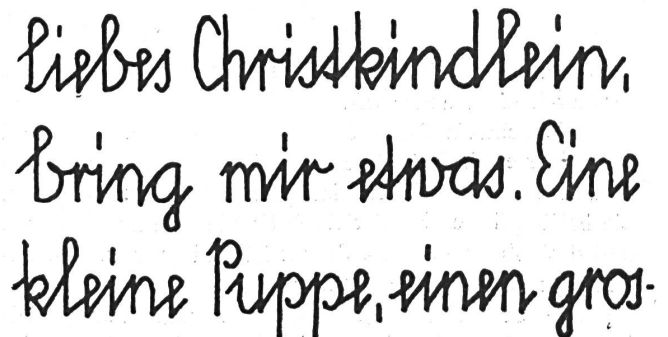 liebes Christkindlein,
bring mir etwas. Eine
kleine Puppe, einen gros-